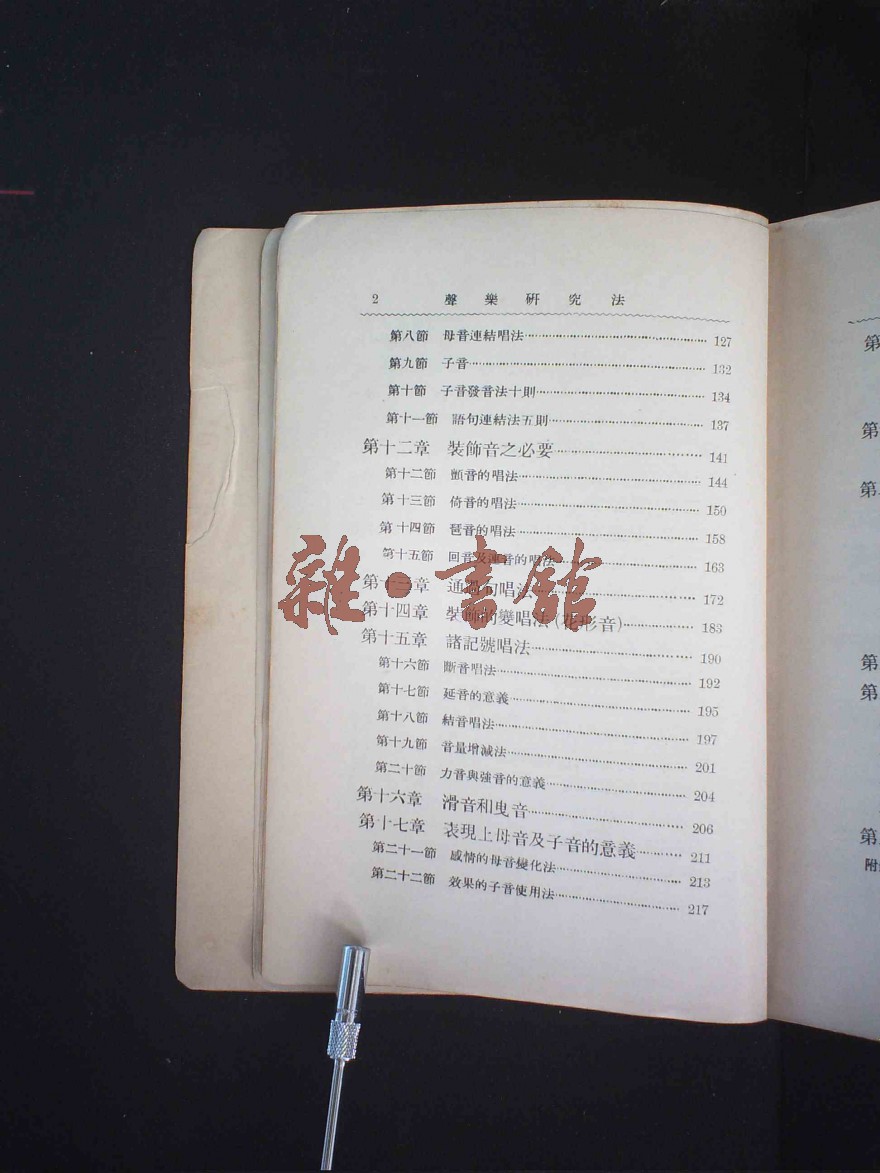 2 聲樂研究法
第八節 母音連結唱法 127
第九節 子音 132
第十節 子音發音法十則 134
第十一節 語句連結法五則 137
第十二章 裝飾音之必要 141
第十二節 顫音的唱法 144
第十三節 倚音的唱法 150
第十四節 琶音的唱法 158
第十五節 回音及連音的唱法 163
第十三章 通過句唱法 172
第十四章 裝飾的變唱法(花形音) 183
第十五章 諸記號唱法 190
第十六節 斷音唱法 192
第十七節 延音的意義 195
第十八節 結音唱法 197
第十九節 音量增減法 201
第二十節 力音與強音的意義 204
第十六章 滑音和曳音 206
第十七章 表現上母音及子音的意義 211
第二十一節 感情的母音變化法 213
第二十二節 效果的子音使用法 217
雜·書館
第
第
第
第
第
第
附